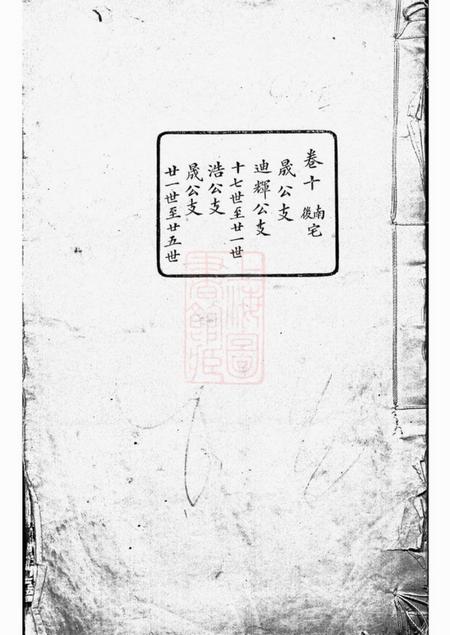 卷十 南宅後
晟公支
迪輝公支
十七世至廿一世
浩公支
晟公支
廿一世至廿五世
上海圖書館藏